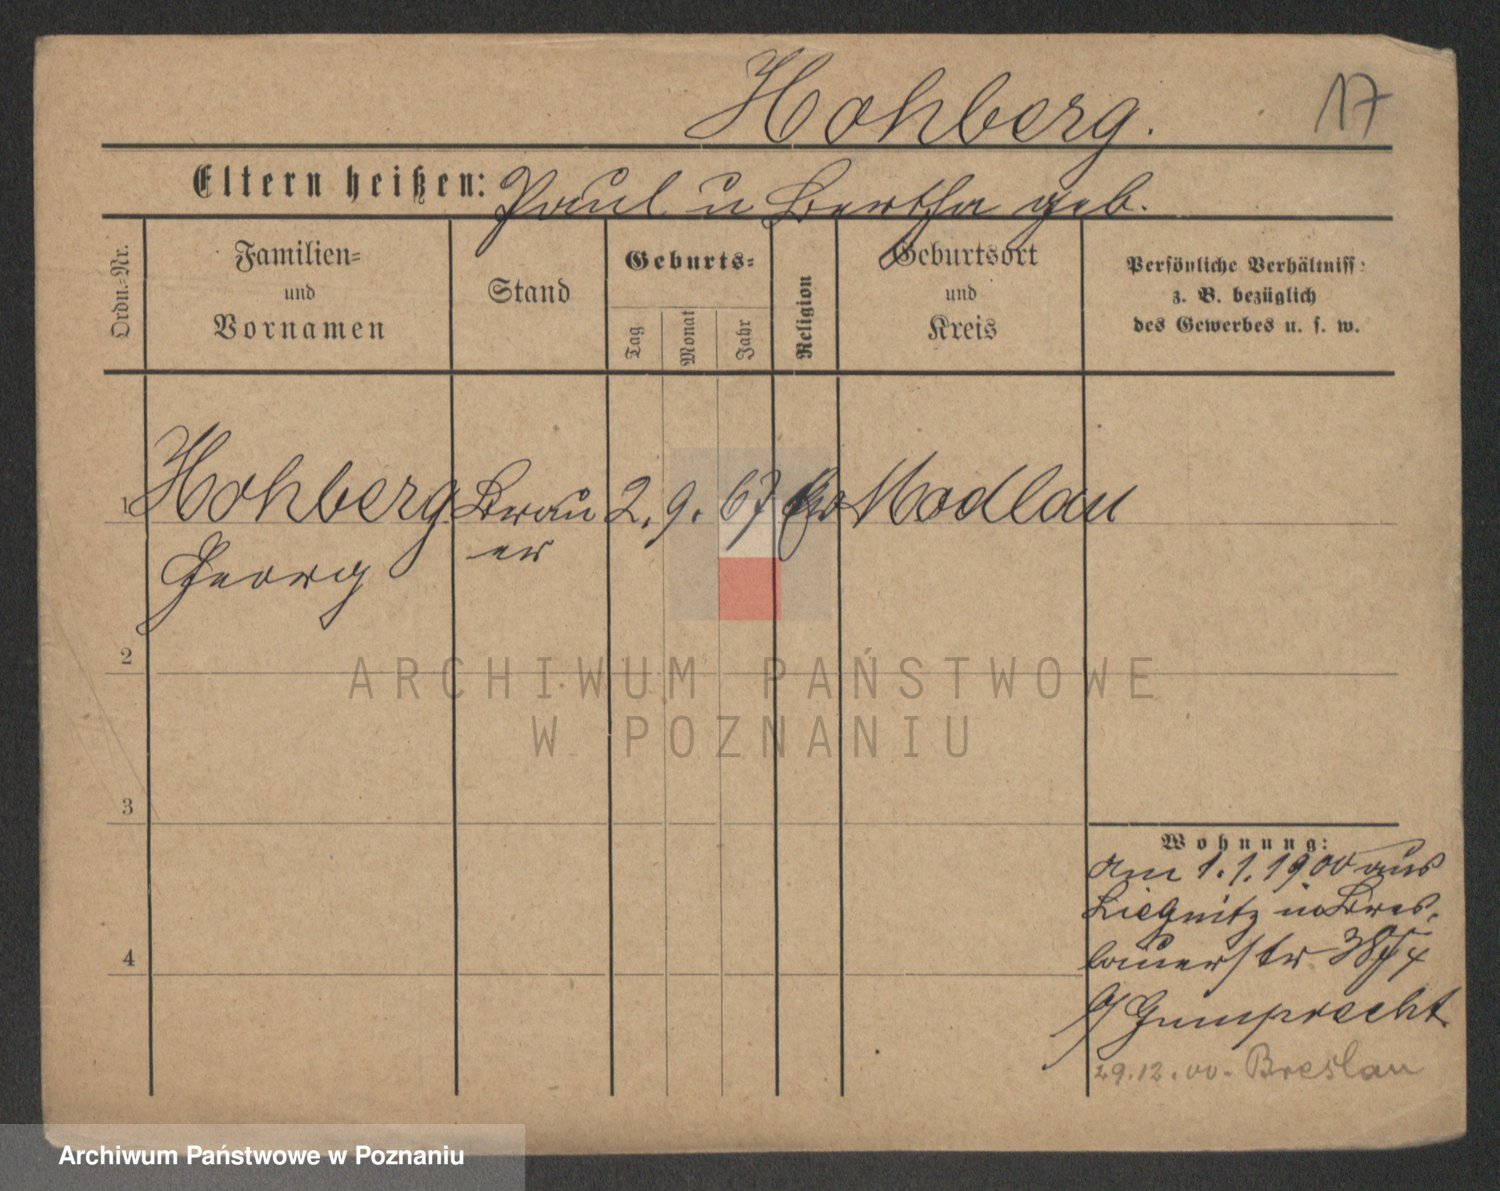 Hohberg.
17
Eltern heißen: Paul u Bertha geb.
Ordn.-Nr.
Familien-
und
Vornamen
Stand
Geburts-
Tag
Monat
Jahr
Religion
Geburtsort
und
Kreis
Persönliche Verhältnisse
z. B. bezüglich
des Gewerbes u. s. w.
1 Hohberg Brau 2. 9. 67 ev Modlau
Georg er
2
ARCHIWUM PAŃSTWOWE
W POZNANIU
3
4
Wohnung:
am 1.1.1900 aus
Liegnitz in Bres-
lauerstr
b/ Gumprecht
29.12.00. Breslau
Archiwum Państwowe w Poznaniu